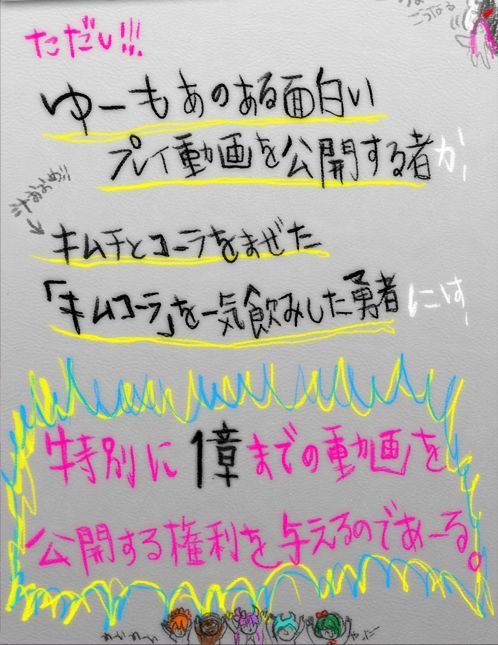 こうなる
ただし!!!
ゆーもあのある面白い
プレイ動画を公開する者か、
汁おおめ!!
キムチとコーラをまぜた
「キムコーラ」を一気飲みした勇者には、
特別に1章までの動画を
公開する権利を与えるのであーる。
わーいわーい